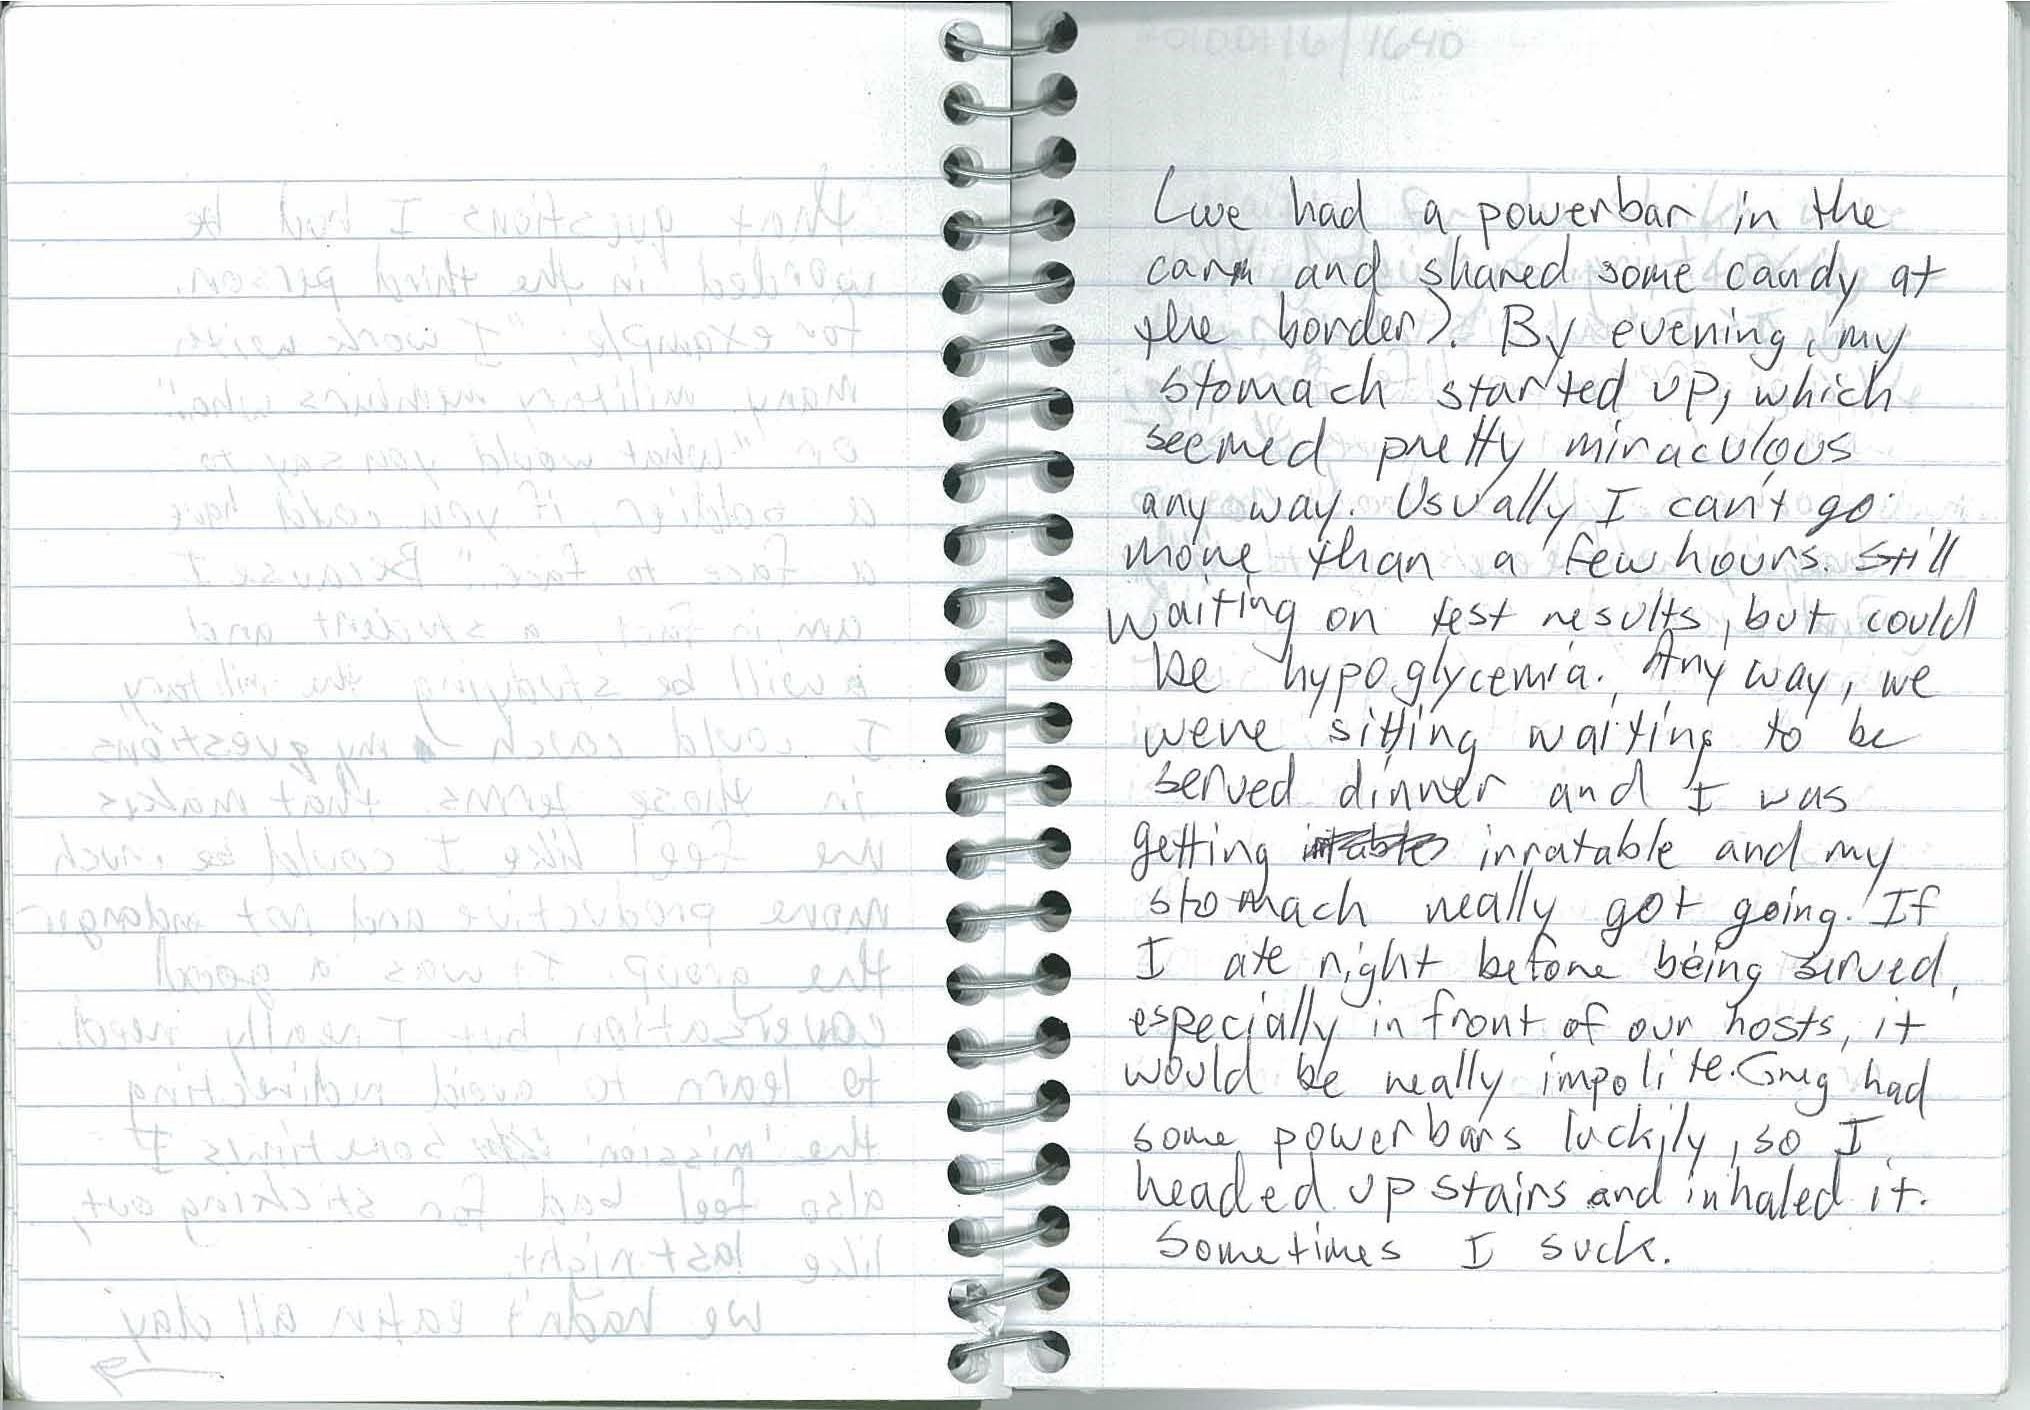 (we had a powerbar in the
car and shared some candy at
the border). By evening, my
stomach started up, which
seemed pretty miraculous
any way. Usually I can't go
more than a few hours. Still
waiting on test results, but could
be hypoglycemia. Any way, we
were sitting waiting to be
served dinner and I was
getting irratable and my
stomach really got going. If
I ate right before being served,
especially in front of our hosts, it
would be really impolite. Greg had
some powerbars luckily, so I
headed up stairs and inhaled it.
Sometimes I suck.